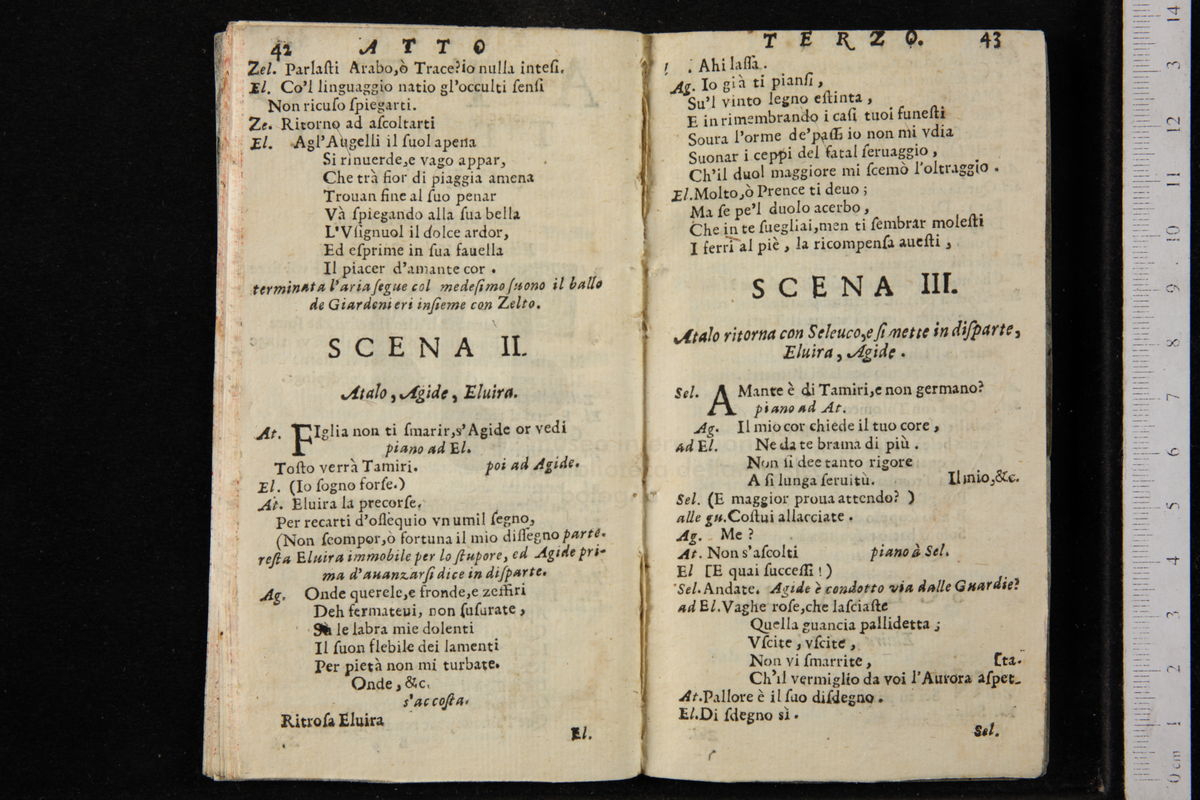 42 ATTO
Zel. Parlaſti Arabo,ò Trace?io nulla inteſi.
El. Co'l linguaggio natio gl'occulti ſenſi
Non ricuſo ſpiegarti.
Ze. Ritorno ad aſcoltarti
El. Agl'Augelli il ſuol apena
Si rinuerde,e vago appar,
Che trà fior di piaggia amena
Trouan fine al ſuo penar
Và ſpiegando alla ſua bella
L'Vſignuol il dolce ardor,
Ed eſprime in ſua fauella
Il piacer d'amante cor .
terminata l'aria ſegue col medeſimo ſuono il ballo
de Giardenieri inſieme con Zelto.
SCENA II.
Atalo, Agide, Eluira.
At. FIglia non ti ſmarir,s'Agide or vedi
piano ad El.
Toſto verrà Tamiri. poi ad Agide.
El. (Io ſogno forſe.)
At. Eluira la precorſe,
Per recarti d'oſſequio vn umil ſegno,
(Non ſcompor,ò fortuna il mio diſſegno parte.
reſta Eluira immobile per lo ſtupore, ed Agide pri-
ma d'auanzarſi dice in diſparte.
Ag. Onde querele,e fronde,e zeffiri
Deh fermateui, non ſuſurate,
Su le labra mie dolenti
Il ſuon flebile dei lamenti
Per pietà non mi turbate.
Onde, &c.
s'accoſta.
Ritroſa Eluira
El.
TERZO. 43
. Ahi laſſa.
Ag. Io già ti pianſi,
Su'l vinto legno eſtinta,
E in rimembrando i caſi tuoi funeſti
Soura l'orme de'paſſi io non mi vdia
Suonar i ceppi del fatal ſeruaggio,
Ch'il duol maggiore mi ſcemò l'oltraggio .
El. Molto,ò Prence ti deuo;
Ma ſe pe'l duolo acerbo,
Che in te ſuegliai,men ti ſembrar moleſti
I ferri al piè, la ricompenſa aueſti,
SCENA III.
Atalo ritorna con Seleuco,e ſi mette in diſparte,
Eluira, Agide.
Sel. AMante è di Tamiri,e non germano?
piano ad At.
Ag. Il mio cor chiede il tuo core,
ad El. Ne da te brama di più .
Non ſi dee tanto rigore
A ſi lunga ſeruitù. Il mio,&c.
Sel. (E maggior proua attendo? )
alle gu. Coſtui allacciate .
Ag. Me ?
At. Non s'aſcolti piano à Sel.
El [E quai ſucceſſi!)
Sel. Andate. Agide è condotto via dalle Guardie?
ad El. Vaghe roſe,che laſciaſte
Quella guancia pallidetta;
Vſcite, vſcite,
Non vi ſmarrite, [ta.
Ch'il vermiglio da voi l'Aurora aſpet-
At. Pallore è il ſuo diſdegno .
El. Di ſdegno sì.
Sel.
0 cm 1 2 3 4 5 6 7 8 9 10 11 12 3 14